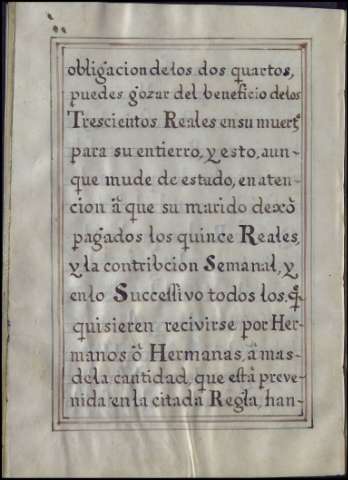 obligacion de los dos quartos,
puedes gozar del beneficio de los
Trescientos Reales en su muert,
para su entierro, y esto, aun-
que mude de estado, en aten-
cion â que su marido dexò
pagados los quince Reales,
y la contribcion Semanal, y
en lo Successivo todos los, q̃
quisieren recivirse por Her-
manos ò Hermanas, â mas-
de la cantidad, que està preve-
nida en la citada Regla, han-